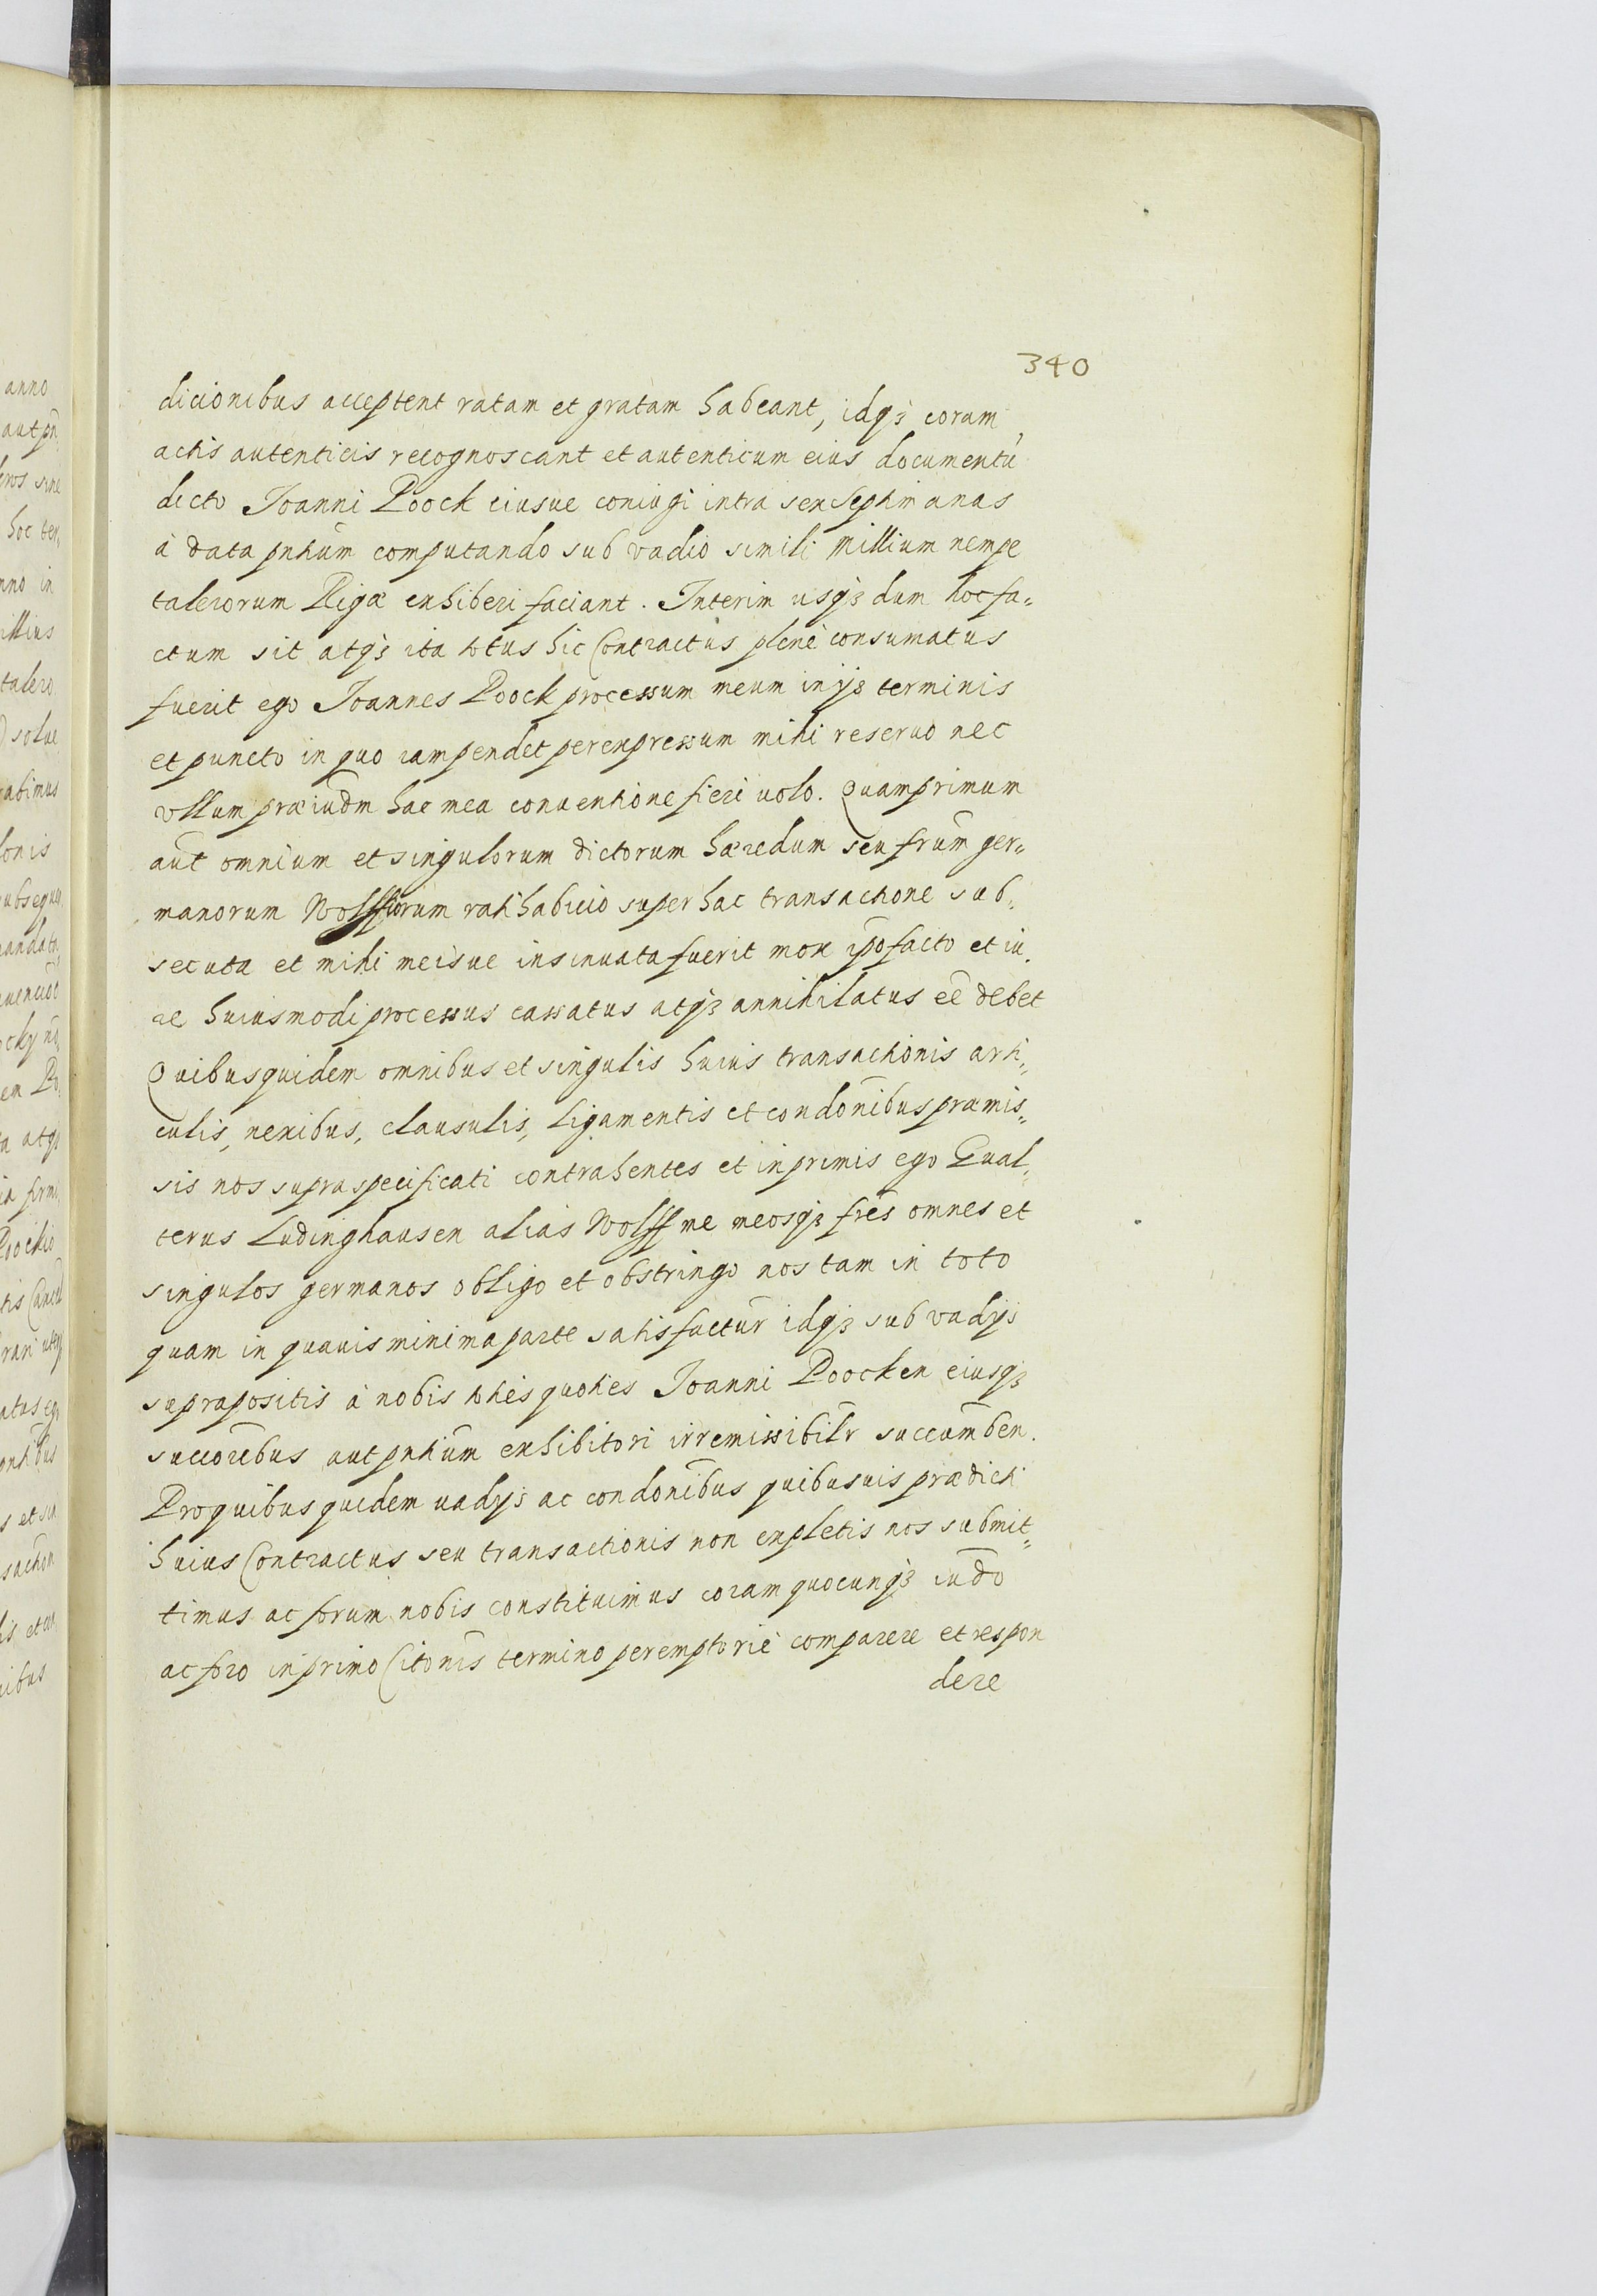 340
dicionibus acceptent ratam et gratam habeant, idqȝ coram
actis autenticis recognoscant et autenticum eius documentū
dicto Joanni Poock eiusve coniugi intra sex septimanas
à data pntium computando sub vadio simili Millium nempe
talerorum Rigæ exhiberi faciant. Interim usqȝ dum hoc fa„
ctum sit atqȝ ita totus hic Contractus plenè consumatus
fuerit ego Joannes Poock processum meum in ijs terminis
et puncto in quo iam pendet per expressum mihi reseruo nec
vllum præiudm hac mea conuentione fieri uolo. Quamprimum
aūt omnium et singulorum dictorum hæredum seu frūm ger„
manorum Wolffiorum ratihabicio super hac transactione sub„
secuta et mihi meisue insinuata fuerit mox ipō facto et iu„
re huiusmodi processus cassatus atqȝ annihilatus eē debet
Quibus quidem omnibus et singulis huius transactionis arti„
culis, nexibus, clausulis, ligamentis et condonībus præmis„
sis nos supraspecificati contrahentes et inprimis ego Gual„
terus Ludinghausen alias Wolff me meosqȝ frēs omnes et
singulos germanos obligo et obstringo nos tam in toto
quam in quauis minima parte satisfactur̄ idqȝ sub vadijs
suprapositis à nobis toties quoties Joanni Poocken eiusqȝ
succorībus aut pntiūm exhibitori irremissibilr succumben.
Pro quibus quidem uadijs ac condonībus quibusuis prædicti
huius Contractus seu transactionis non expletis nos submit„
timus ac forum nobis constituimus coram quocunqȝ iudō
ac foro in primo Citonīs termino peremptoriè comparere et respon
dere
anno
aut pn
hoc ter„
nno in
illius
talero„
solue
abimus
lonis
ubsequen
mandata
cky
atqȝ
firmi
is et
ibus